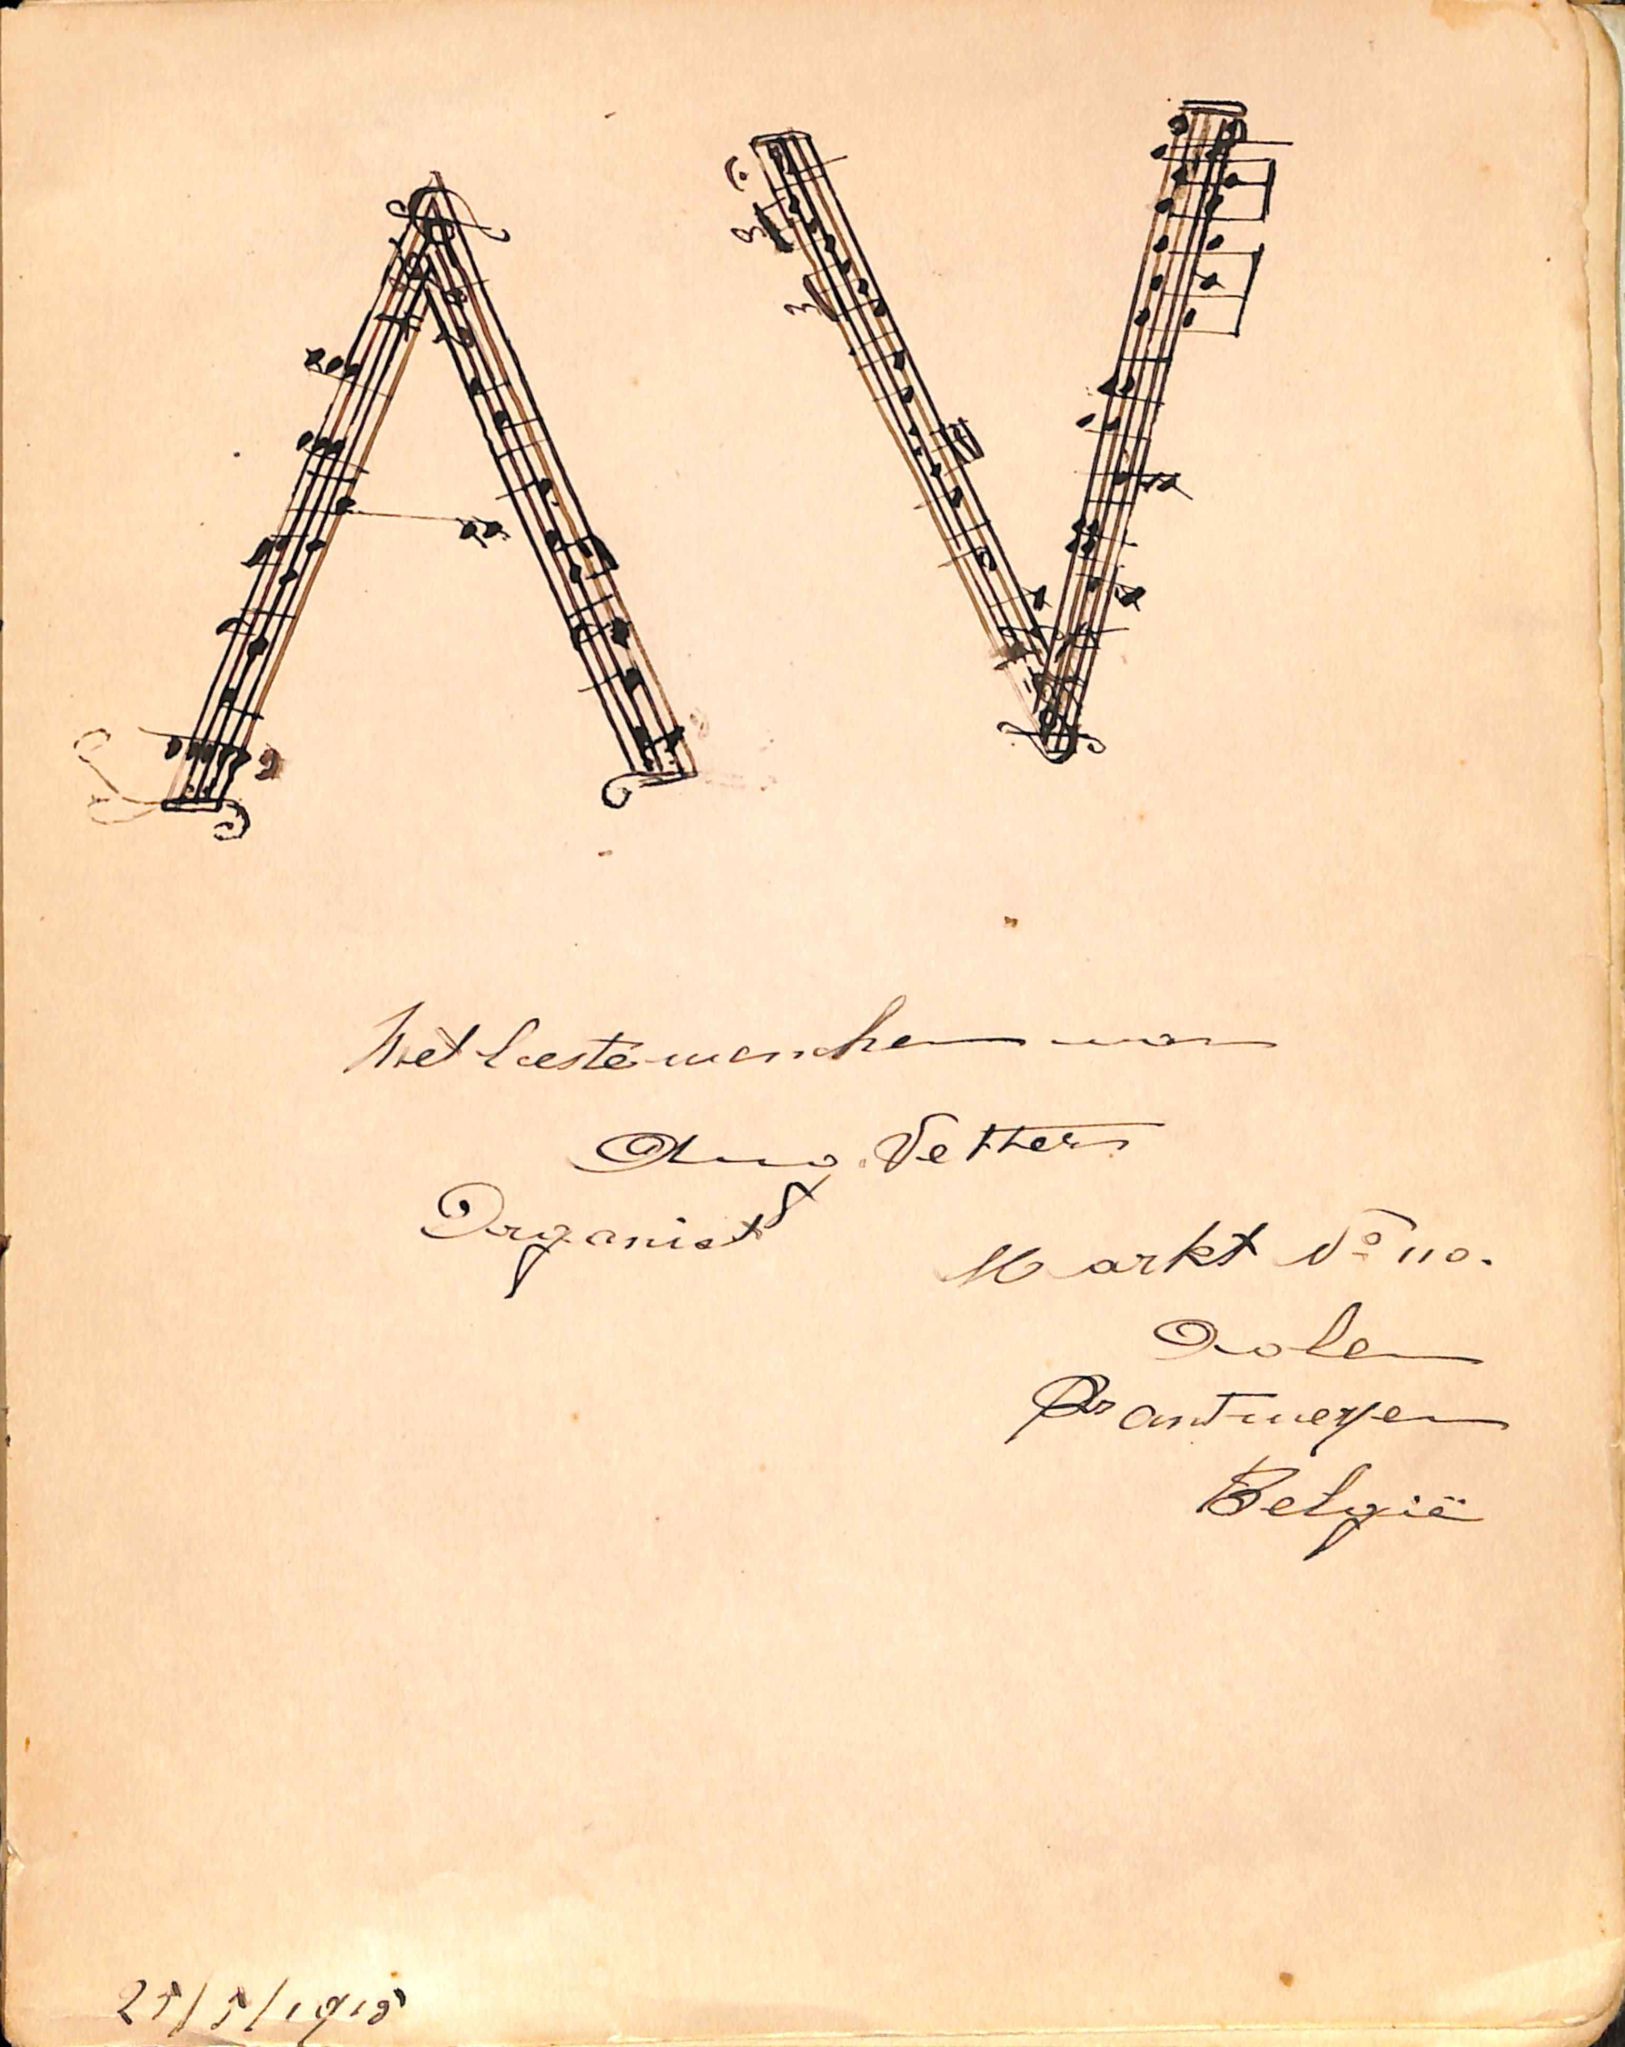 A V
Het beste wenschen van
Aug. Vetters
Organist
Markt No 110.
Oolen
Pr Antwerpen
België
25/5/1918